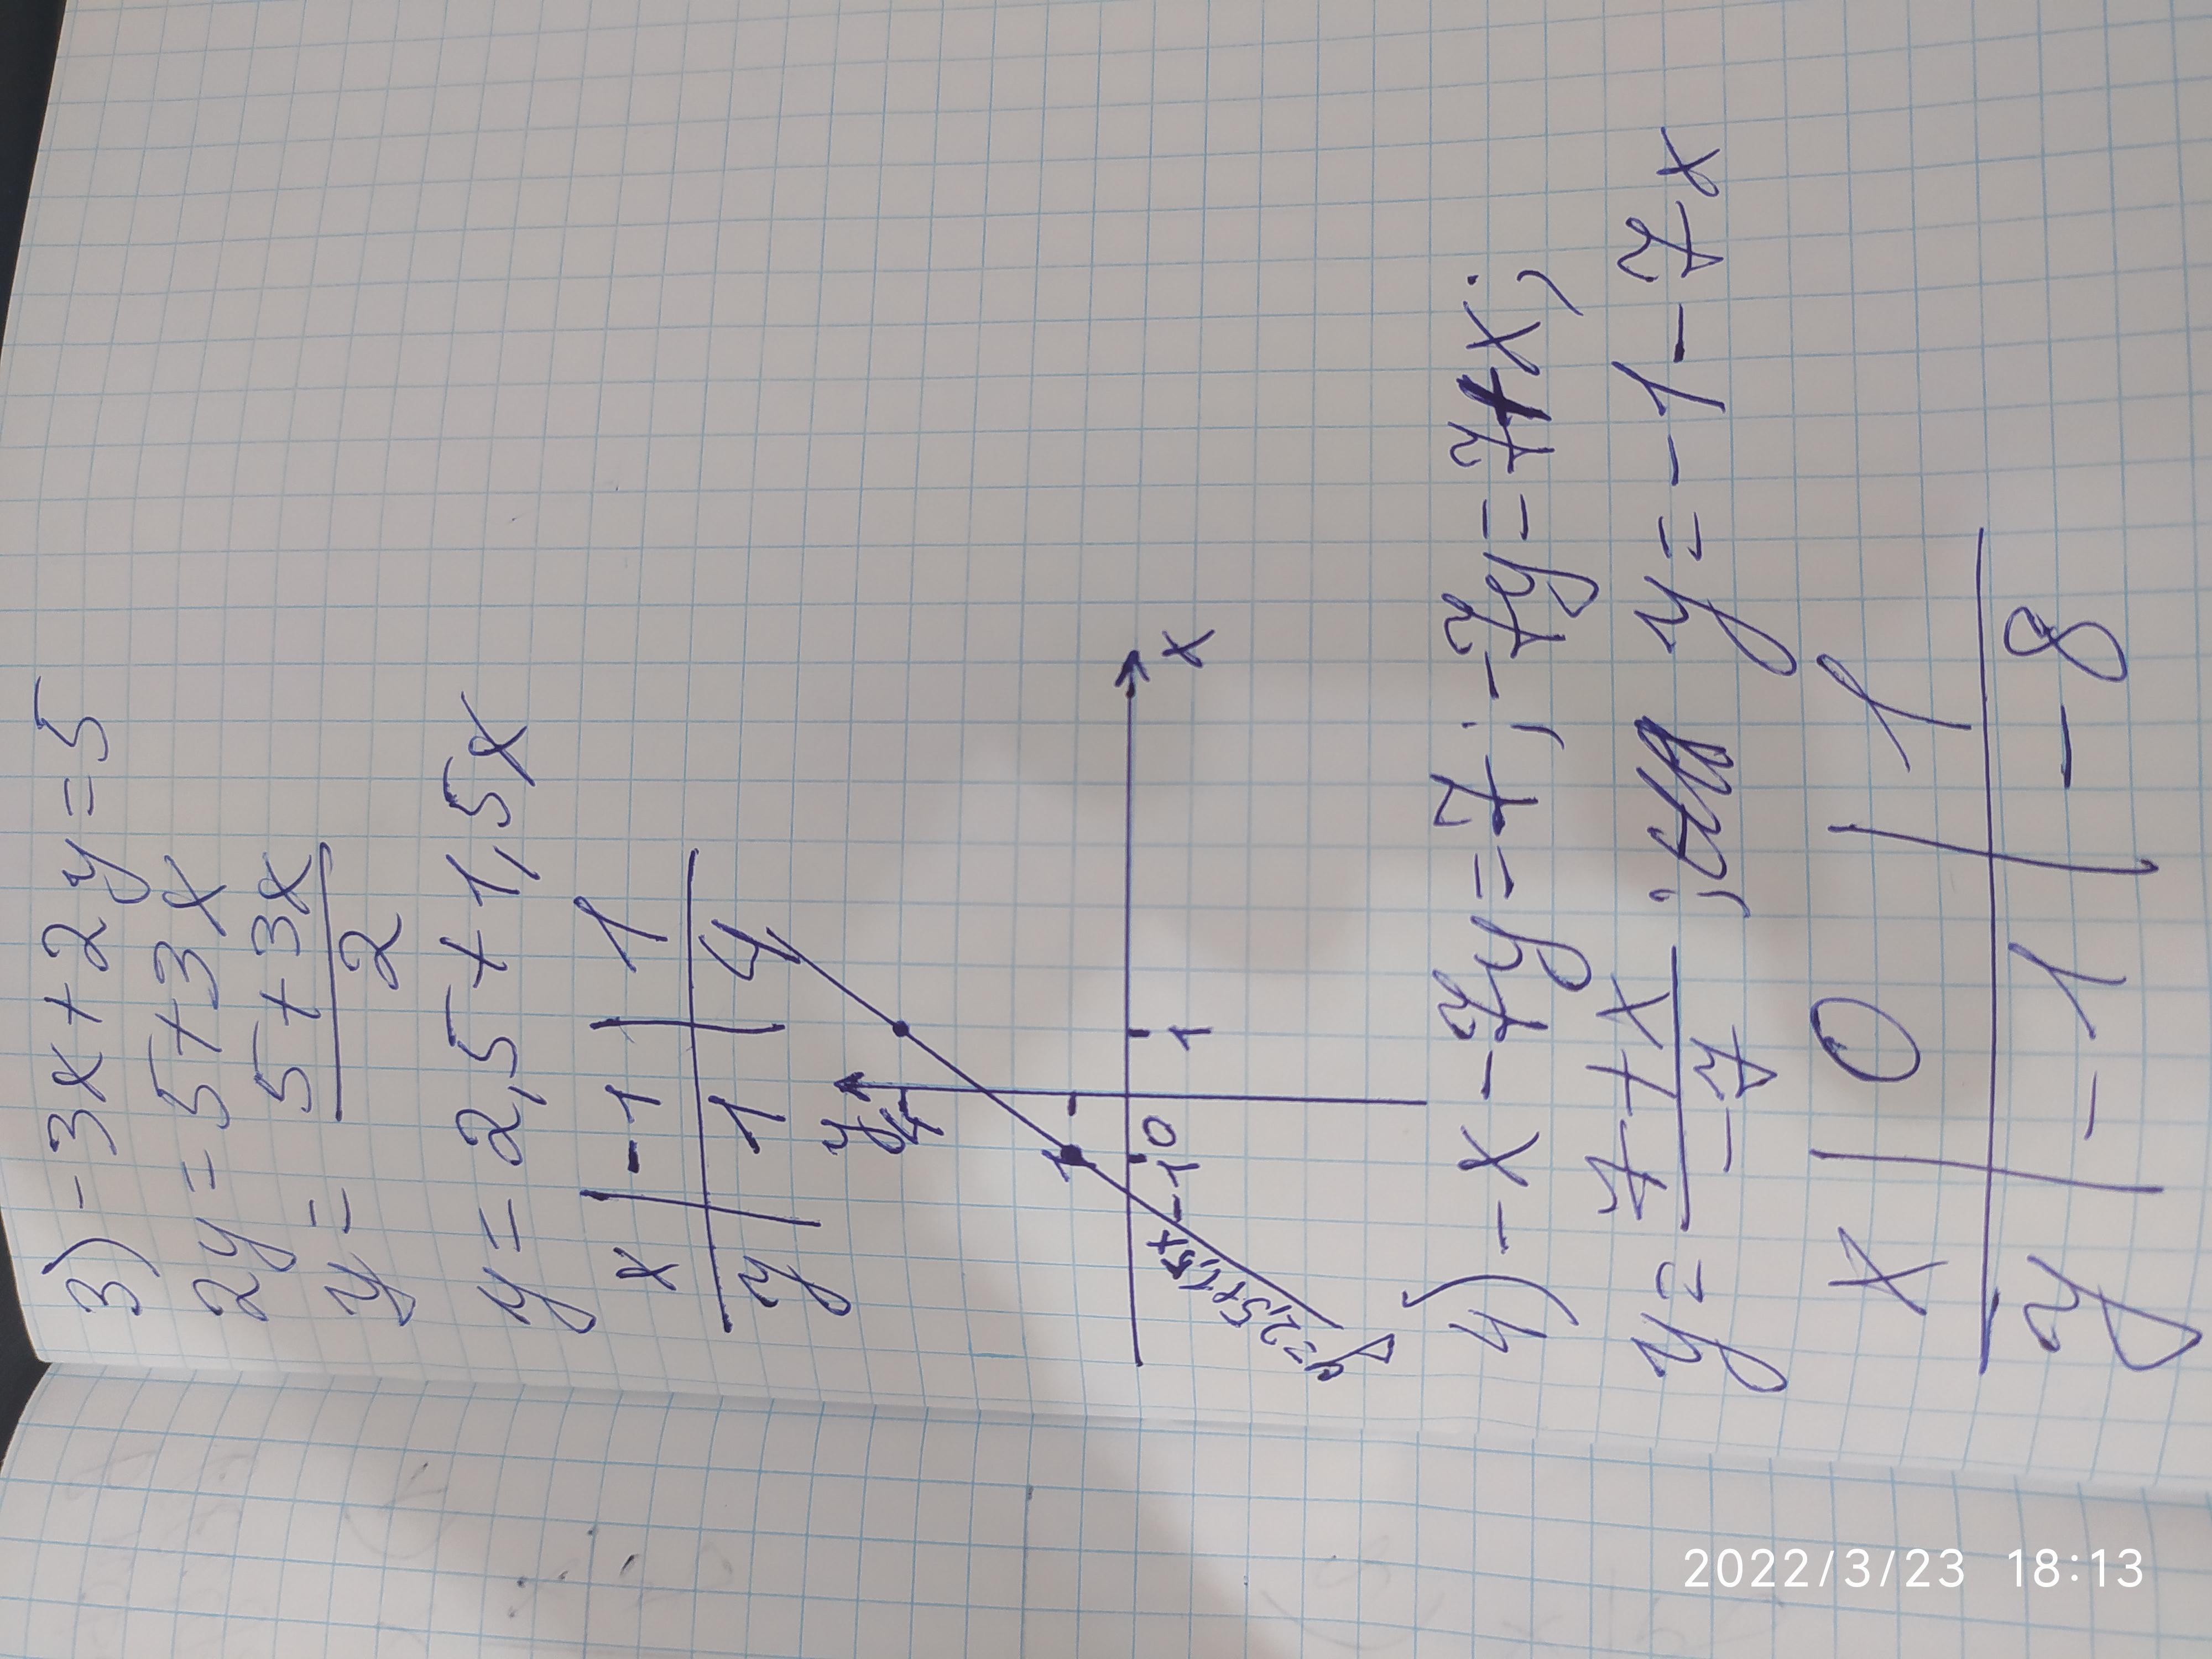 3) -3x + 2y = 5
2y = 5 + 3x
y = 5 + 3x
2
y = 2,5 + 1,5x
x | -1 | 1
y | 1 | 4
y
4
1
-1 0 1 x
y=2,5+1,5x
4) -x - 7y = 7 ; -7y = 7+x;
y = 7 + x / -7 ; y = -1 - 7x
x | 0 | 1
y | -1 | -8
2022/3/23 18:13